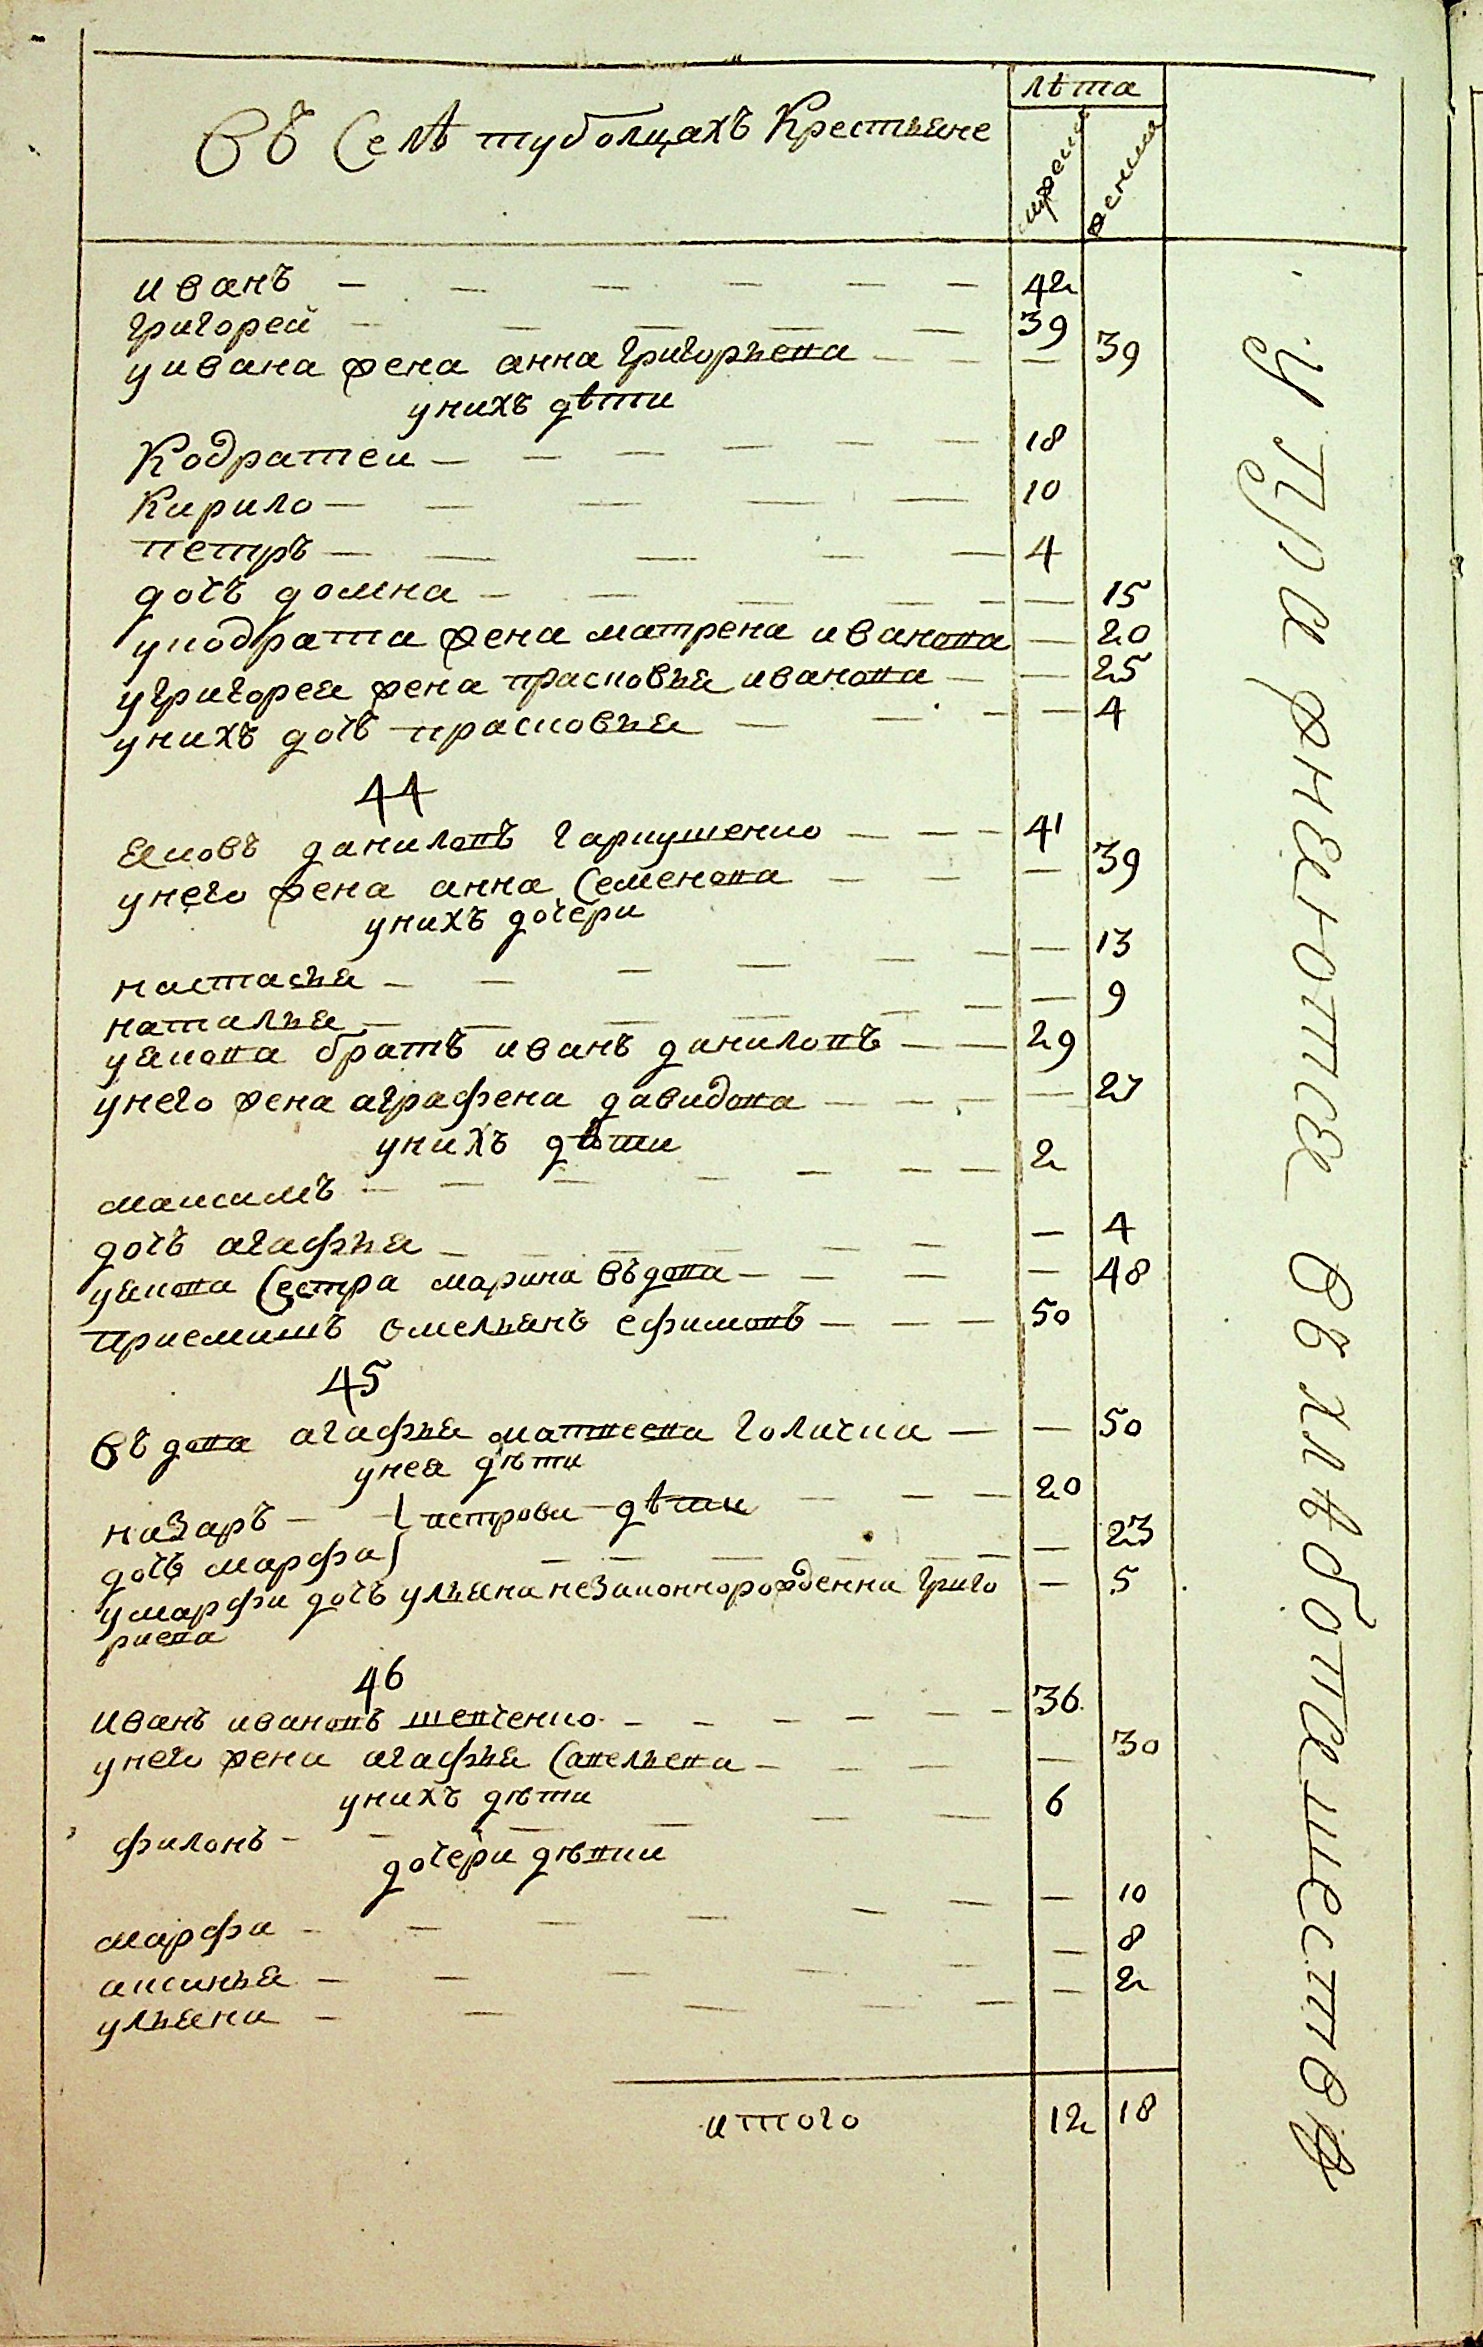 лѣта
Въ Селѣ туболцахъ Крестьяне
мужеск
женска
иванъ — — — — — — 42
григорей — — — — — 39
уивана жена анна григорьева — — — 39
унихъ дѣти
Кодратеи — — — — — — 18
Кирило — — — — — 10
петръ — — — — — 4
дочъ домна — — — — — — 15
укодрата жена матрена иванова — 20
угригорея жена прасковья иванова — — 25
унихъ дочъ прасковья — — — — 4
44
яковъ даниловъ гаркушенко — — — 41
унего жена анна Семенова — — — 39
унихъ дочери
настасья — — — — — — — 13
наталья — — — — — — — 9
уякова братъ иванъ даниловъ — — 29
унего жена аграфена давидова — — — — 27
унихъ дѣти
максимъ — — — — — — — 2
дочъ агафья — — — — — — — 4
уякова Сестра марина въдова — — — — 48
приемишъ омельянъ ефимовъ — — — 50
45
въдова агафья матвеева голичка — — 50
унея дѣти
назаръ — петрови дѣти — — — 20
дочъ марфа — — — — — — — 23
умарфи дочъ ульяна незаконнорожденна григо — 5
риева
46
иванъ ивановъ шевченко — — — — — — 36
унего жена агафья Савельева — — — — 30
унихъ дѣти
филонъ — — — — — — 6
дочери дѣвки
марфа — — — — — — — 10
аксинья — — — — — — 8
ульяна — — — — — — 2
итого 12 18
упражняются въ хлѣбопашествѣ